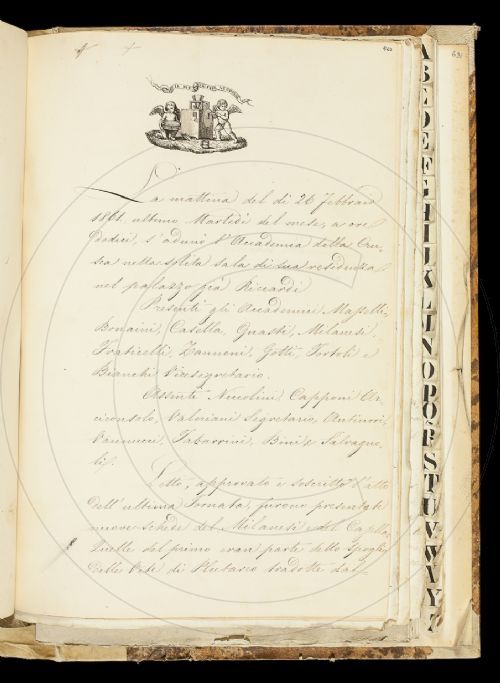 La mattina del dì 26 Febbraio
1861 ultimo Martedì del mese, a ore
dodici, s'adunò l'Accademia della Cru-
sca nella solita sala di sua residenza
nel palazzo già Riccardi
Presenti gli Accademici, Masselli,
Bonaini, Casella, Guasti, Milanesi,
Fraticelli, Zannoni, Gotti, Tortoli e
Bianchi Vicesegretario.
Assenti Niccolini, Capponi Ar-
ciconsolo, Valeriani Segretario, Antinori,
Vannucci, Tabarrini, Bini e Salvagno-
li.
Letto, approvato e soscritto l'atto
dell'ultima Tornata, furono presentate
nuove schede del Milanesi e del Capello
Quelle del primo eran parte dello spoglio
delle Vite di Plutarco tradotte dal-
A
B
D
E
F
G
H
I
J
K
L
N
O
P
Q
R
S
T
U
V
W
Y
Z